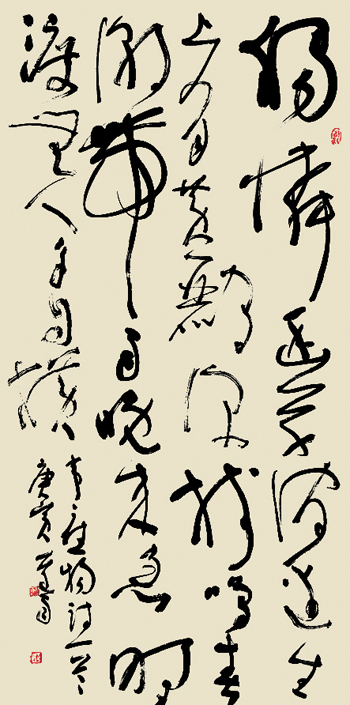 獨憐幽草澗邊生
上有黄鸝深樹鳴春
潮帶雨晚来急野
渡無人舟自横
韋應物詩一首
庚寅